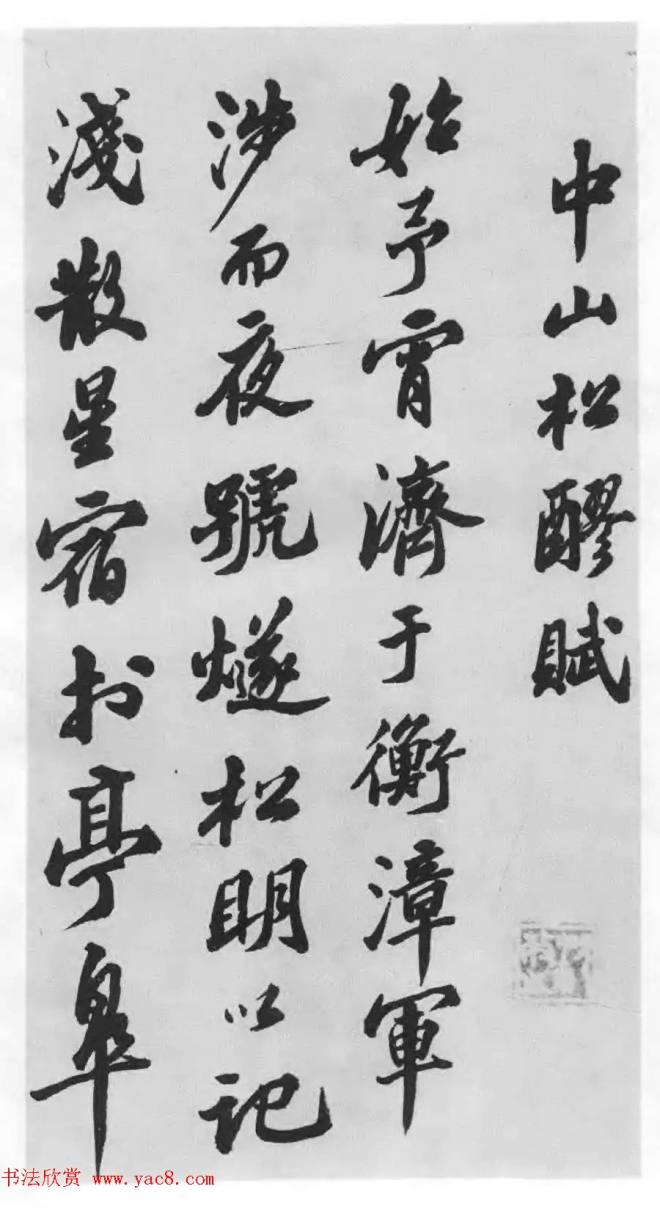 中山松醪賦
始予宵濟于衡漳軍
涉而夜號燧松明以記
淺散星宿於亭皋
书法欣赏 www.yac8.com